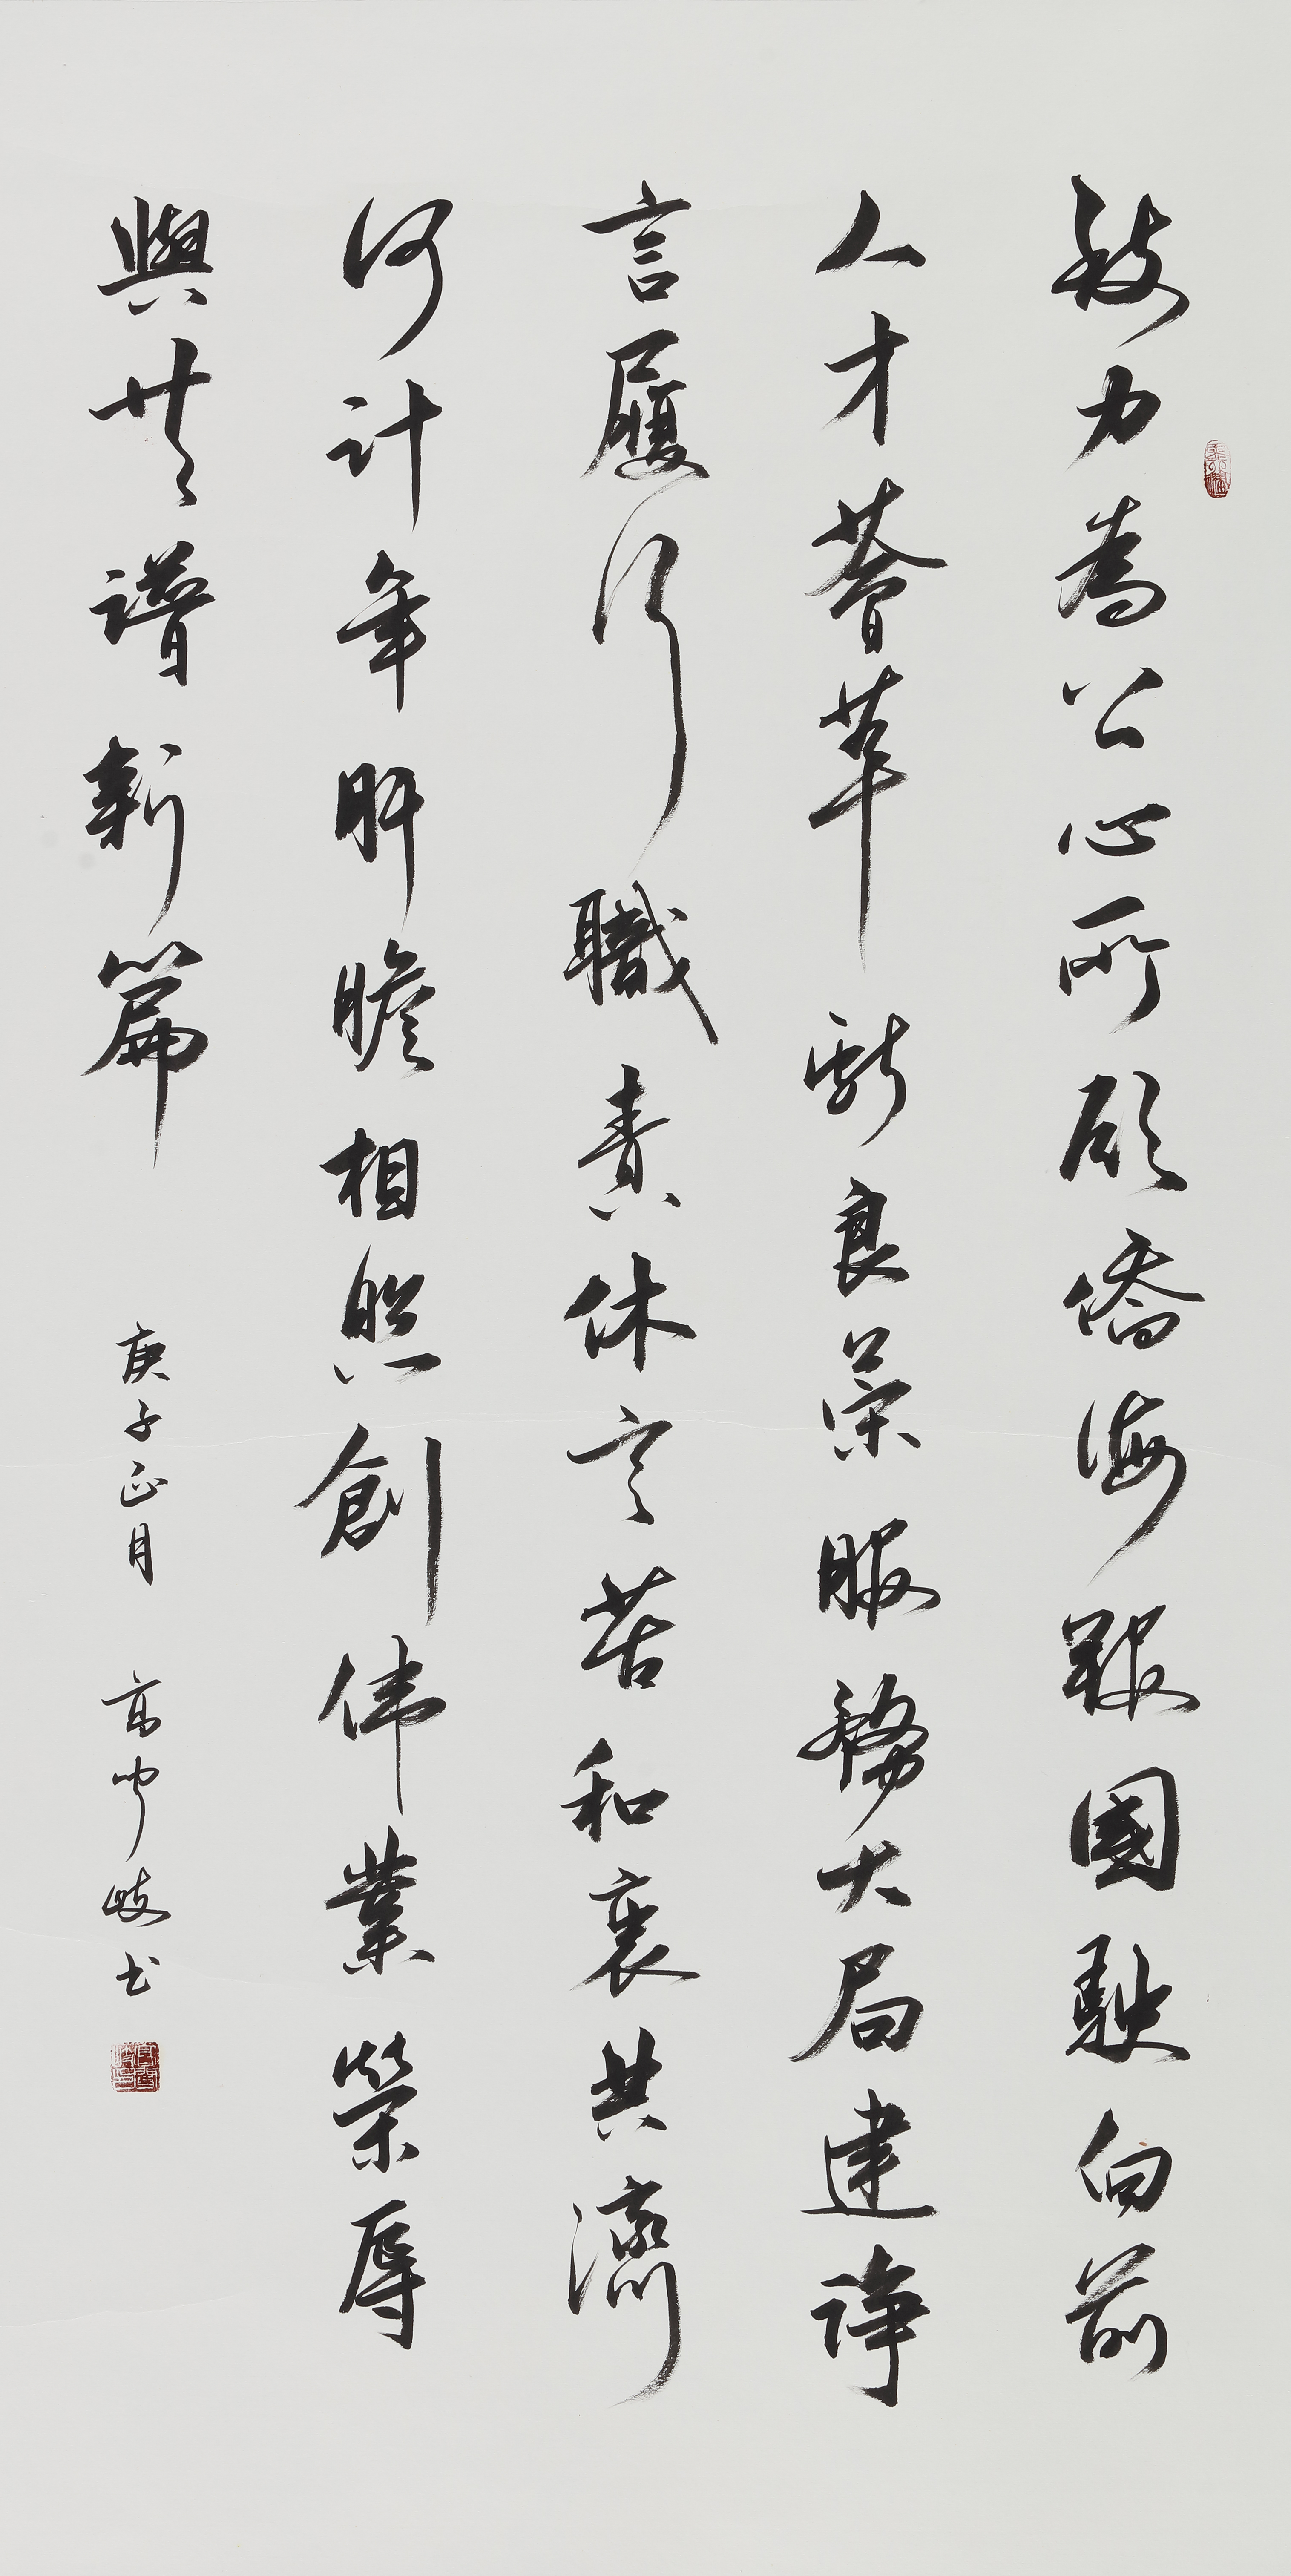 致力為公心所願僑海報國駛向前
人才薈萃獻良策服務大局建諍
言履行職責休言苦和衷共濟
何計年肝膽相照創偉業榮辱
與共譜新篇
庚子正月
高峻岐书